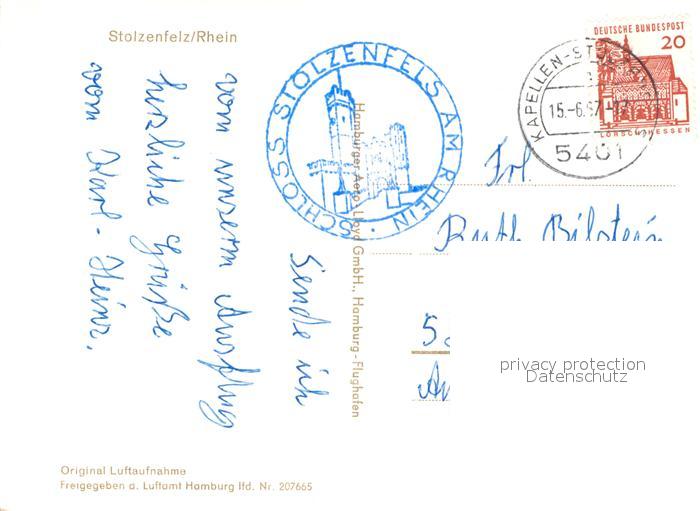 Stolzenfelz/Rhein
SCHLOSS STOLZENFELS AM RHEIN
DEUTSCHE BUNDESPOST
20
LORSCH/HESSEN
KAPELLEN-ST
15.-6.67.-17
5401
Hamburger Aero-Lloyd GmbH., Hamburg-Flughafen
Sende ich
vom unserm Ausflug
herzliche Grüße
von Karl-Heinz.
Frl.
Ruth Bilstein
5
privacy protection
Datenschutz
Original Luftaufnahme
Freigegeben d. Luftamt Hamburg lfd. Nr. 207665